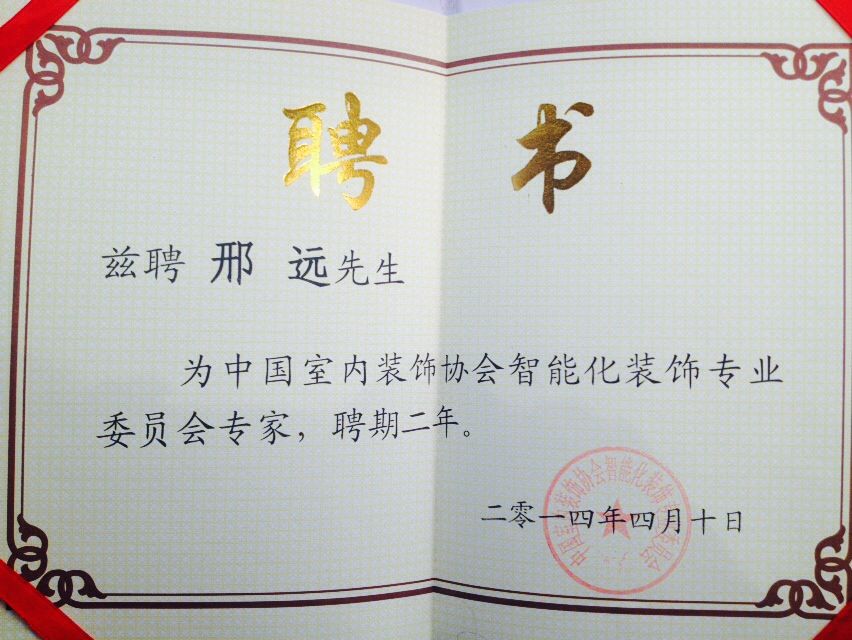 聘 书
兹聘 邢 远先生
为中国室内装饰协会智能化装饰专业
委员会专家，聘期二年。
二零一四年四月十日
中国室内装饰协会智能化装饰专业委员会